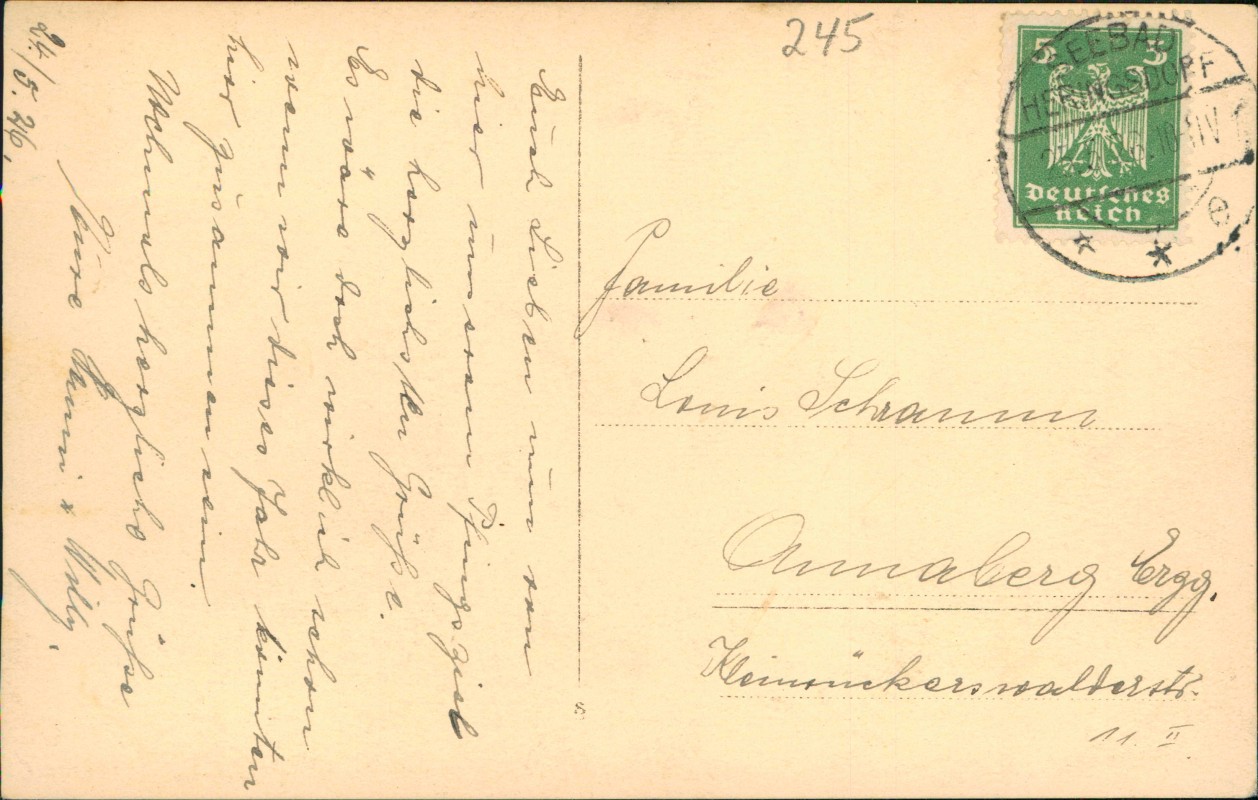 245
5 5
Deutsches
Reich
SEEBAD
HERINGSDORF
10-11V
e
24./5. 26.
Euch Lieben nun von
hier unserem Pfingsziel
die herzlichsten Grüße.
Es wäre doch wirklich schön
wenn wir dieses Jahr könnten
hier zusammen sein
Nochmals herzliche Grüße
Eure Hanni & Willy.
Familie
Louis Schramm
Annaberg Erzg.
Kleinrückerswalderstr.
11. II
S